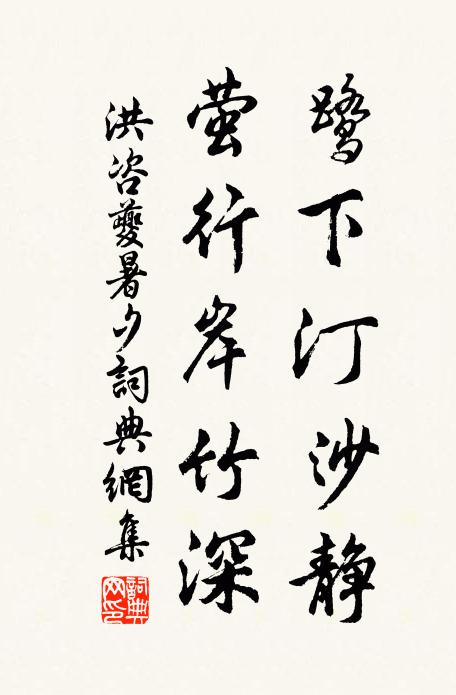 鹭下汀沙静
萤行岸竹深
洪咨夔暑夕詞典網集
詞典网印